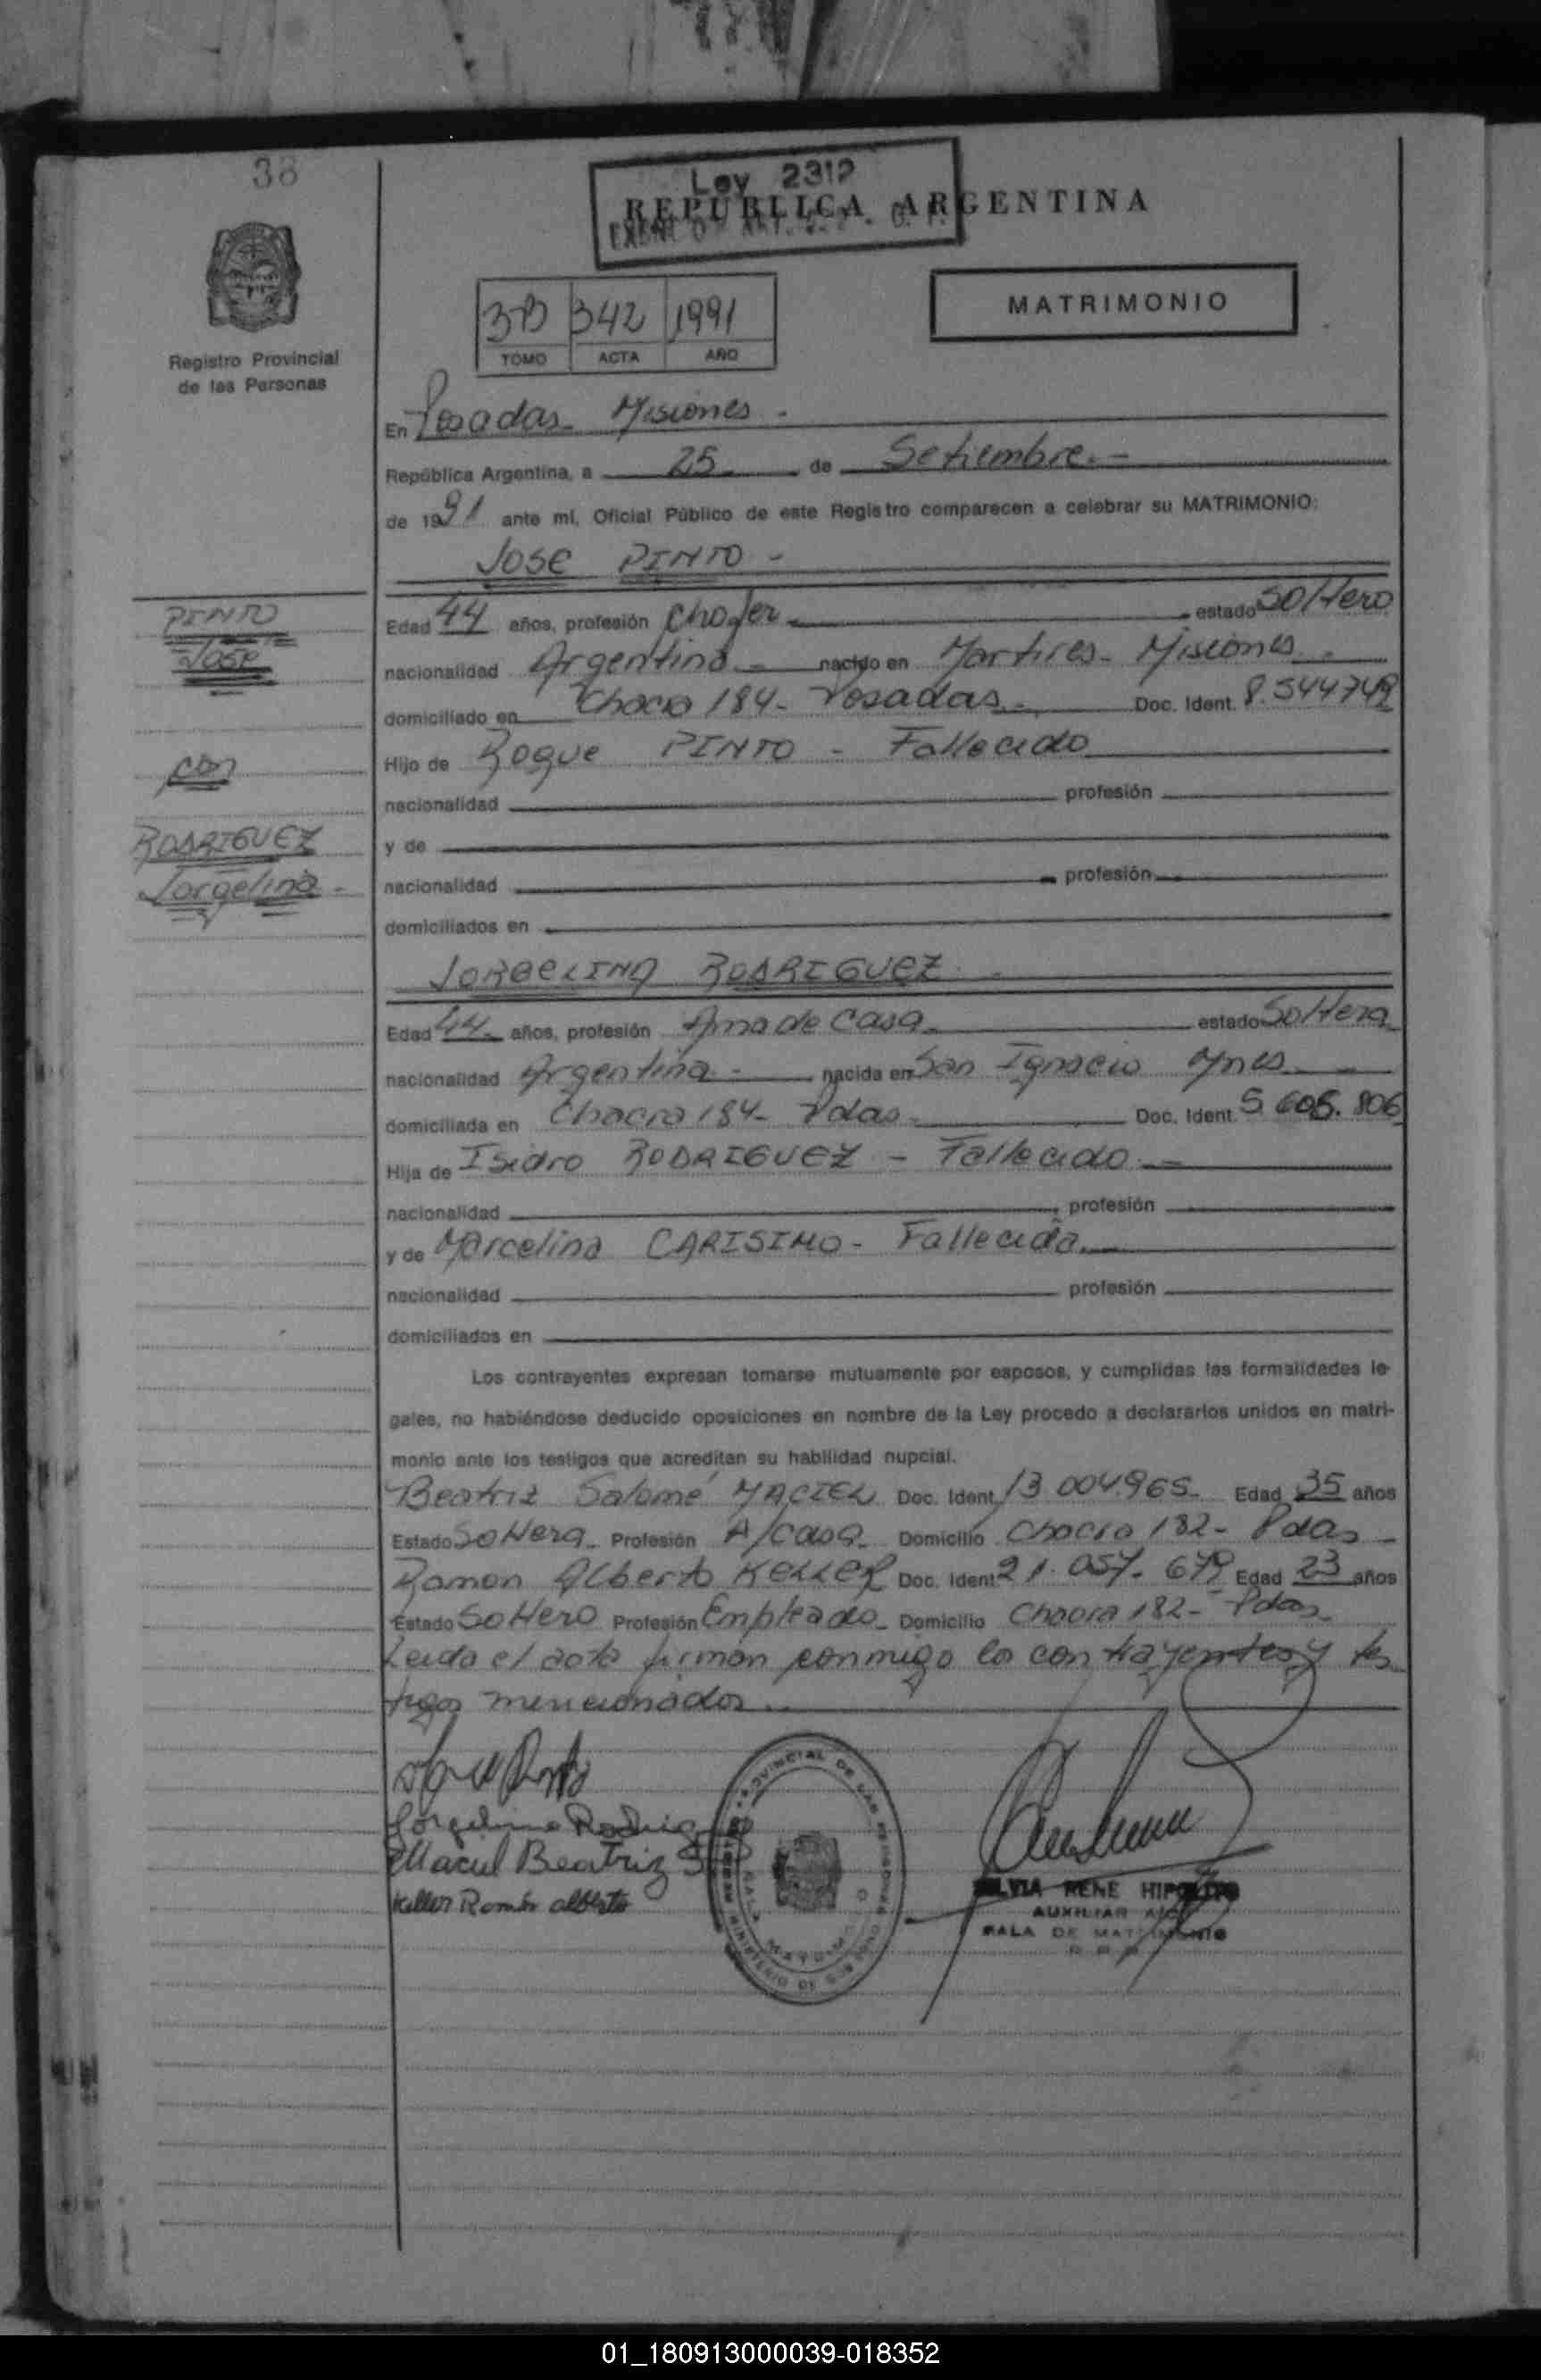 38
Ley 2312
REPUBLICA ARGENTINA
MATRIMONIO
342 1991
TOMO ACTA AÑO
Registro Provincial
de las Personas
En Posadas - Misiones -
República Argentina, a 25 de Setiembre.-
de 1991 ante mí, Oficial Público de este Registro comparecen a celebrar su MATRIMONIO:
JOSE PINTO -
PINTO
José
con
RODRIGUEZ
Jorgelina -
Edad 44 años, profesión Chofer estado Soltero
nacionalidad Argentina - nacido en Martires - Misiones
domiciliado en Chacra 184 - Posadas - Doc. Ident. 8.544749
Hijo de Roque PINTO - Fallecido
nacionalidad profesión
y de
nacionalidad profesión
domiciliados en
JORGELINA RODRIGUEZ -
Edad 44 años, profesión Ama de Casa estado Soltera
nacionalidad Argentina - nacida en San Ignacio Mnes
domiciliada en Chacra 184 - Pdas - Doc. Ident. 5.606.806
Hija de Isidro RODRIGUEZ - Fallecido -
nacionalidad profesión
y de Marcelina CARISIMO - Fallecida
nacionalidad profesión
domiciliados en
Los contrayentes expresan tomarse mutuamente por esposos, y cumplidas las formalidades le-
gales, no habiéndose deducido oposiciones en nombre de la Ley procedo a declararlos unidos en matri-
monio ante los testigos que acreditan su habilidad nupcial.
Beatriz Salomé MACIEL Doc. Ident. 13.004.965 - Edad 35 años
Estado Soltera - Profesión A/casa - Domicilio Chacra 182 - Pdas -
Ramon Alberto KELLER Doc. Ident. 21.057.679 Edad 23 años
Estado Soltero Profesión Empleado - Domicilio Chacra 182 - Pdas -
Leida el acta firman conmigo los contrayentes y tes
tigos mencionados
Jorgelina Rodrig
Maciel Beatriz S
Keller Ramón alberto
SILVIA RENE HIPOLITO
AUXILIAR
SALA DE MATRIMONIO
01_180913000039-018352